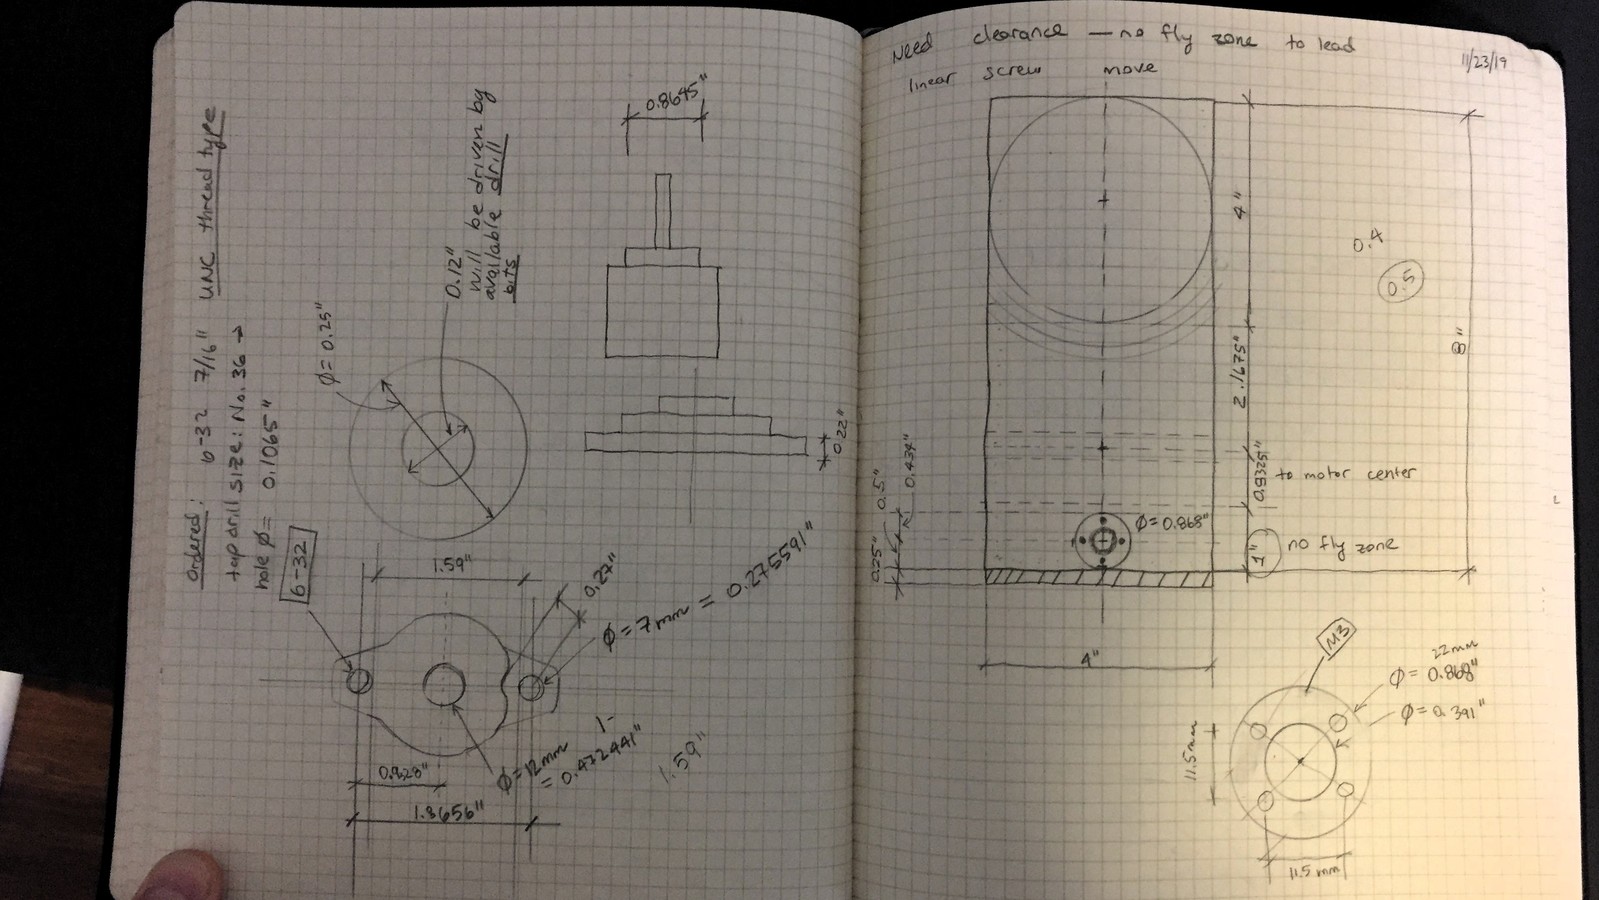 UNC thread type
Ordered: 6-32 7/16"
tap drill size: No. 36 →
hole Ø= 0.1065"
6-32
Ø= 0.25"
0.12"
will be driven by
available drill
bits
0.8645"
0.22"
1.59"
0.27"
Ø=7mm = 0.275591"
Ø=12mm
= 0.472441"
1.59"
1.8656"
Need clearance — no fly zone to lead
linear screw move
11/23/19
4"
0.4
0.5
8"
2.1675"
0.8325" to motor center
0.434"
0.5"
0.25"
Ø=0.868"
1" no fly zone
4"
M3
22mm
Ø= 0.868"
Ø=0.391"
11.5mm
11.5 mm